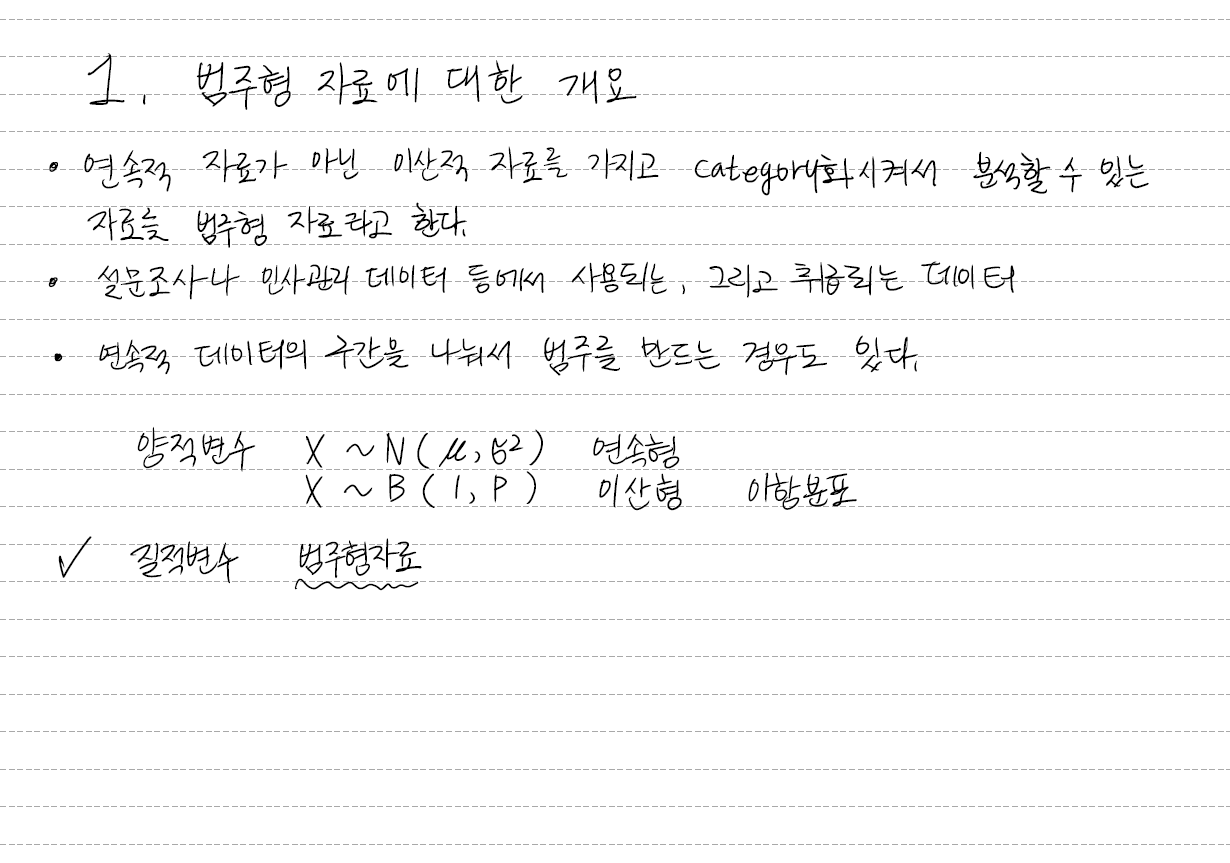 1. 범주형 자료에 대한 개요
• 연속적 자료가 아닌 이산적 자료를 가지고 category화시켜서 분석할 수 있는
자료를 범주형 자료라고 한다.
• 설문조사나 인사관리 데이터 등에서 사용되는, 그리고 취급되는 데이터
• 연속적 데이터의 구간을 나눠서 범주를 만드는 경우도 있다.
양적변수 X ~ N(μ, σ²) 연속형
X ~ B(1, P) 이산형 이항분포
✓ 질적변수 범주형자료